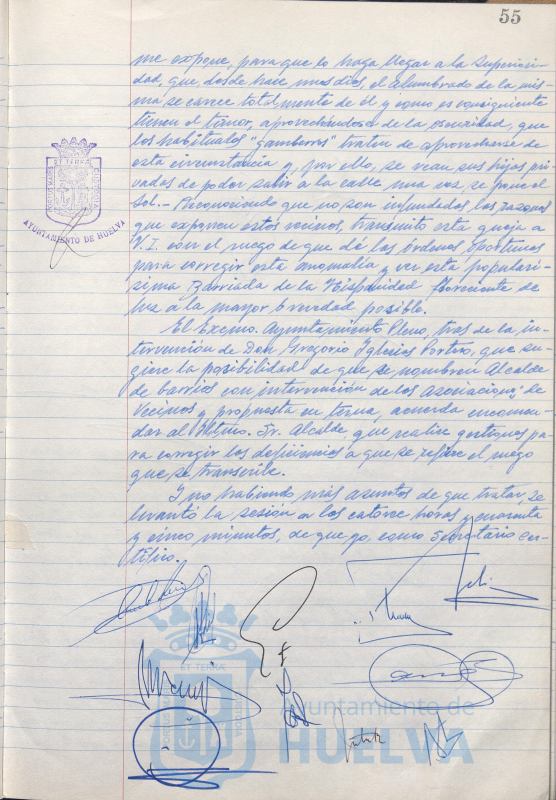 55
me expone, para que lo haga llegar a la Superiori-
dad, que, desde hace unos dias, el alumbrado de la mis-
ma se carece totalmente de él y como es consiguiente
tienen el temor, aprovechándose de la oscuridad, que
los habituales "gamberros" traten de aprovecharse de
esta circunstancia y, por ello, se vean sus hijos pri-
vados de poder salir a la calle una vez se pone el
Sol.- Reconociendo que no son infundadas las razones
que exponen estos vecinos, transmito esta queja a
V.I. con el ruego de que dé las órdenes oportunas
para corregir esta anomalía y ver esta populari-
sima Barriada de la Hispanidad floreciente de
luz a la mayor brevedad posible.
El Excmo. Ayuntamiento Pleno, tras de la in-
tervención de Don Gregorio Iglesias Portero, que su-
giere la posibilidad de que se nombren Alcalde
de barrios con intervención de las Asociaciones de
Vecinos y propuesta en terna, acuerda encomen-
dar al Iltmo. Sr. Alcalde, que realice gestiones pa-
ra corregir las deficiencias a que se refiere el ruego
que se transcribe.
Y no habiendo más asuntos de que tratar, se
levantó la sesión a las catorce horas y cuarenta
y cinco minutos, de que yo, como Secretario cer-
tifico.
AYUNTAMIENTO DE HUELVA
Ayuntamiento de
HUELVA